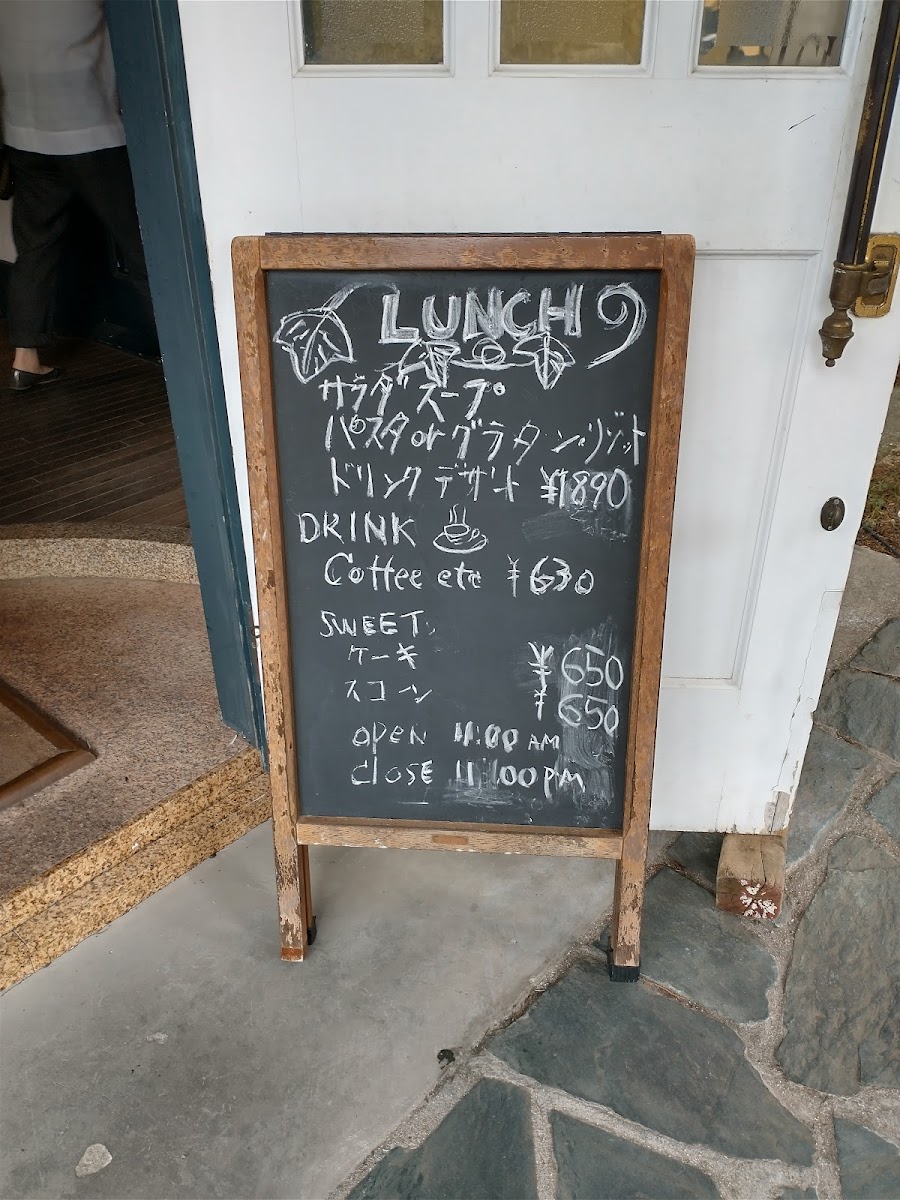 LUNCH
サラダ スープ
パスタ or グラタン・リゾット
ドリンク デザート ¥1890
DRINK
Coffee etc ¥630
SWEET
ケーキ ¥650
スコーン ¥650
open 11:00 AM
close 11:00 pm